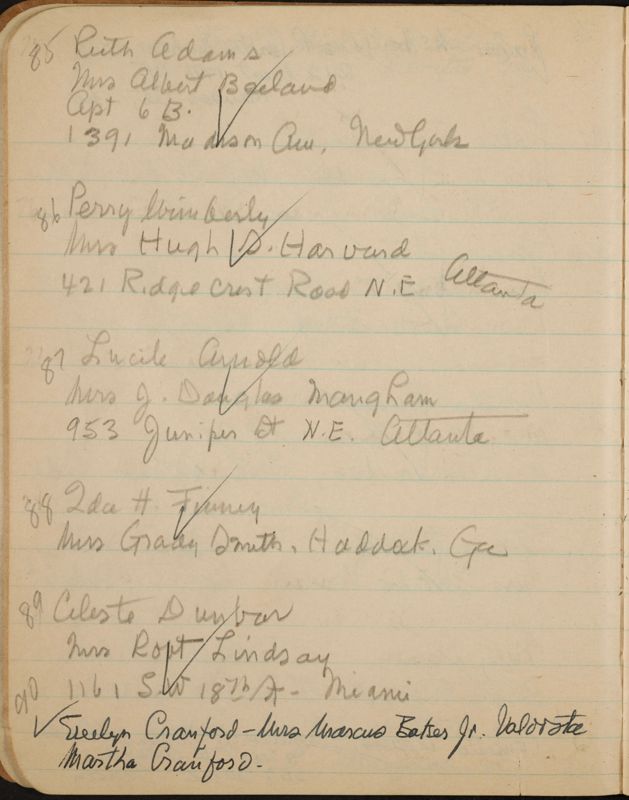 85 Ruth Adams
Mrs Albert Boeland
Apt 6 B.
1391 Madison Ave, New York
86 Perry Wimberly
Mrs Hugh D. Harvard
421 Ridgecrest Road N.E Atlanta
87 Lucile Arnold
Mrs J. Douglas Mangham
953 Juniper St N.E. Atlanta
88 Ida H. Finney
Mrs Grady Smith. Haddock. Ga
89 Celeste Dunbar
Mrs Robt Lindsay
1161 S.W 18th St - Miami
90 Evelyn Cranford - Mrs Marcus Bates Jr. Valdosta
Martha Cranford.